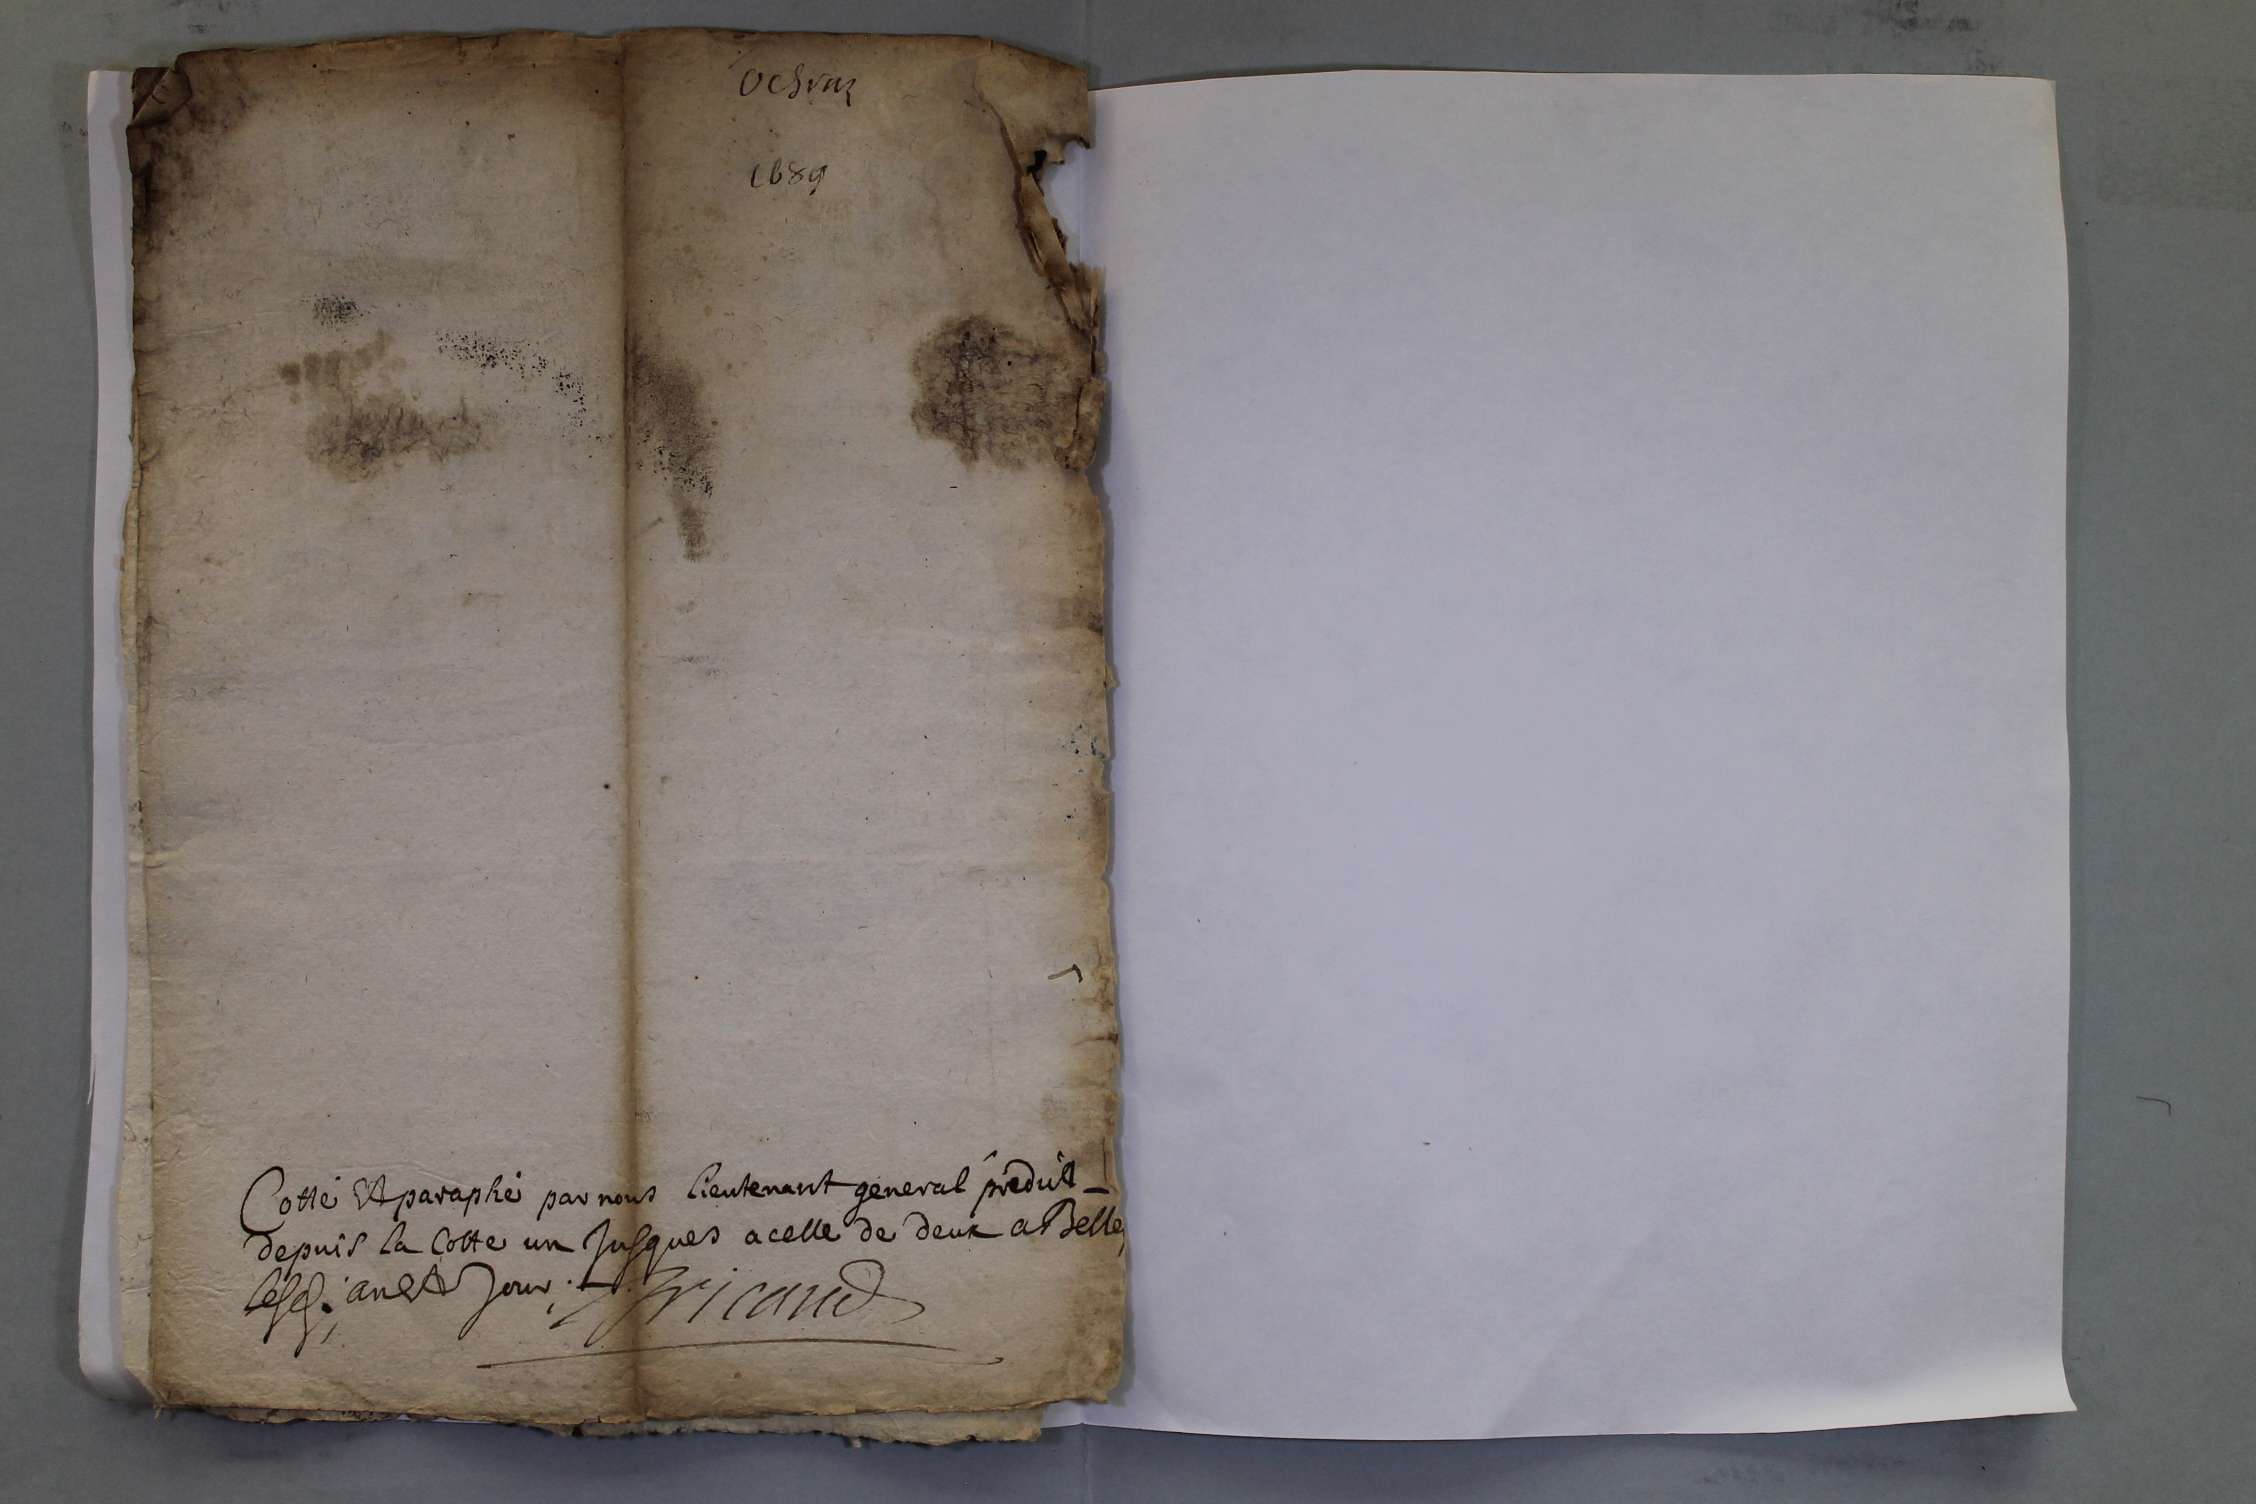 Ochiaz
1689
Cotté Et paraphé par nous lieutenant general prédit
depuis la Cotte un Jusques a celle de deux a Belley
an Et Jour